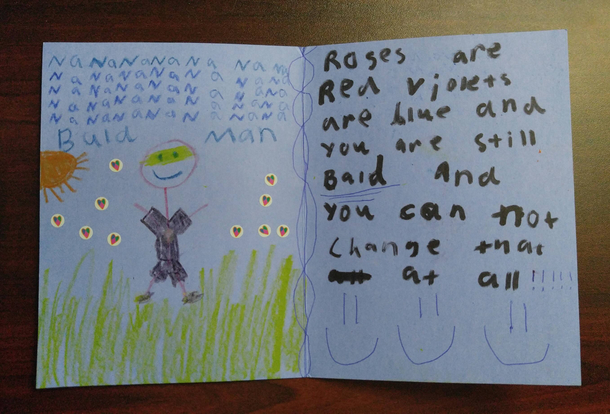 Na Na Na Na Na Na Na Na
Na Na Na Na Na Na Na
Na Na Na Na Na Na Na
Na Na Na Na Na Na Na
Na Na Na Na Na Na Na
Bald Man
Roses are
Red violets
are blue and
you are still
Bald And
you can not
change that
at all!!!!!!